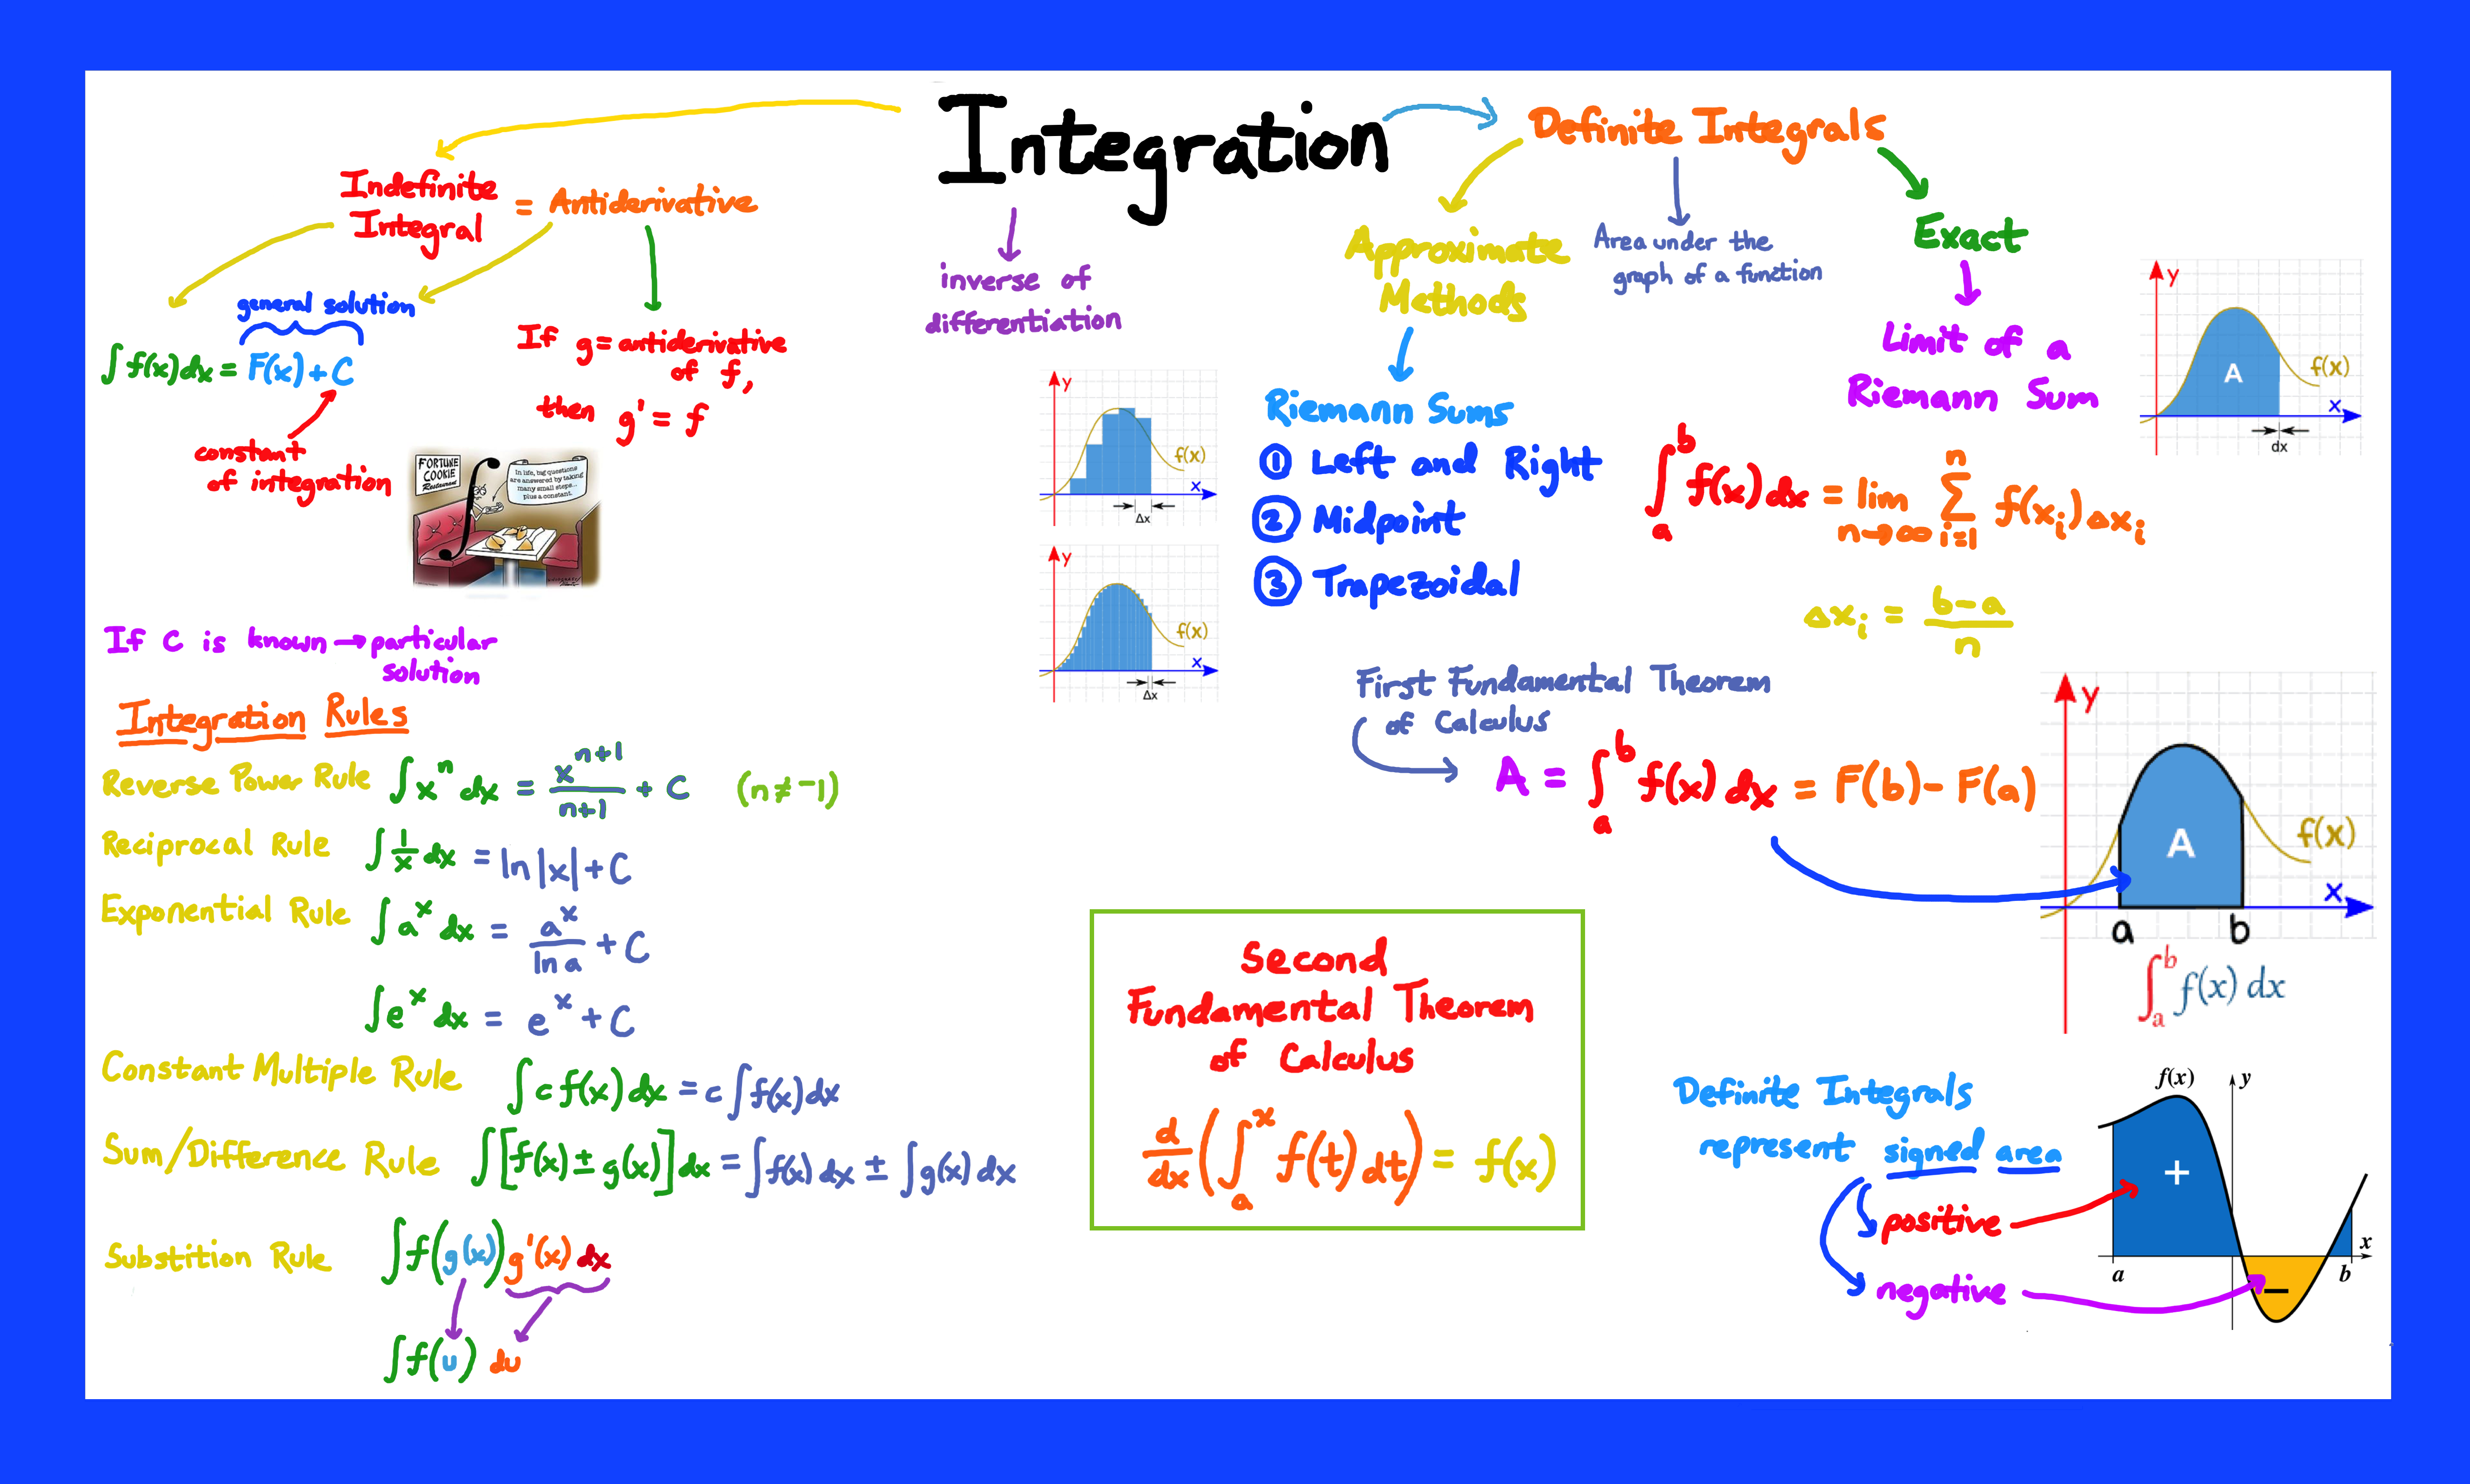 Integration
inverse of
differentiation
Indefinite
Integral
= Antiderivative
general solution
∫f(x)dx = F(x)+C
constant
of integration
If g = antiderivative
of f,
then g' = f
FORTUNE
COOKIE
Restaurant
In life, big questions
are answered by taking
many small steps...
plus a constant.
If C is known → particular
solution
Integration Rules
Reverse Power Rule ∫xⁿ dx = xⁿ⁺¹/n+1 + C (n≠-1)
Reciprocal Rule ∫1/x dx = ln|x|+C
Exponential Rule ∫aˣ dx = aˣ/ln a + C
∫eˣ dx = eˣ + C
Constant Multiple Rule ∫c f(x) dx = c∫f(x)dx
Sum/Difference Rule ∫[f(x) ± g(x)]dx = ∫f(x) dx ± ∫g(x) dx
Substition Rule ∫f(g(x))g'(x) dx
∫f(u) du
Definite Integrals
Approximate
Methods
Area under the
graph of a function
Exact
Riemann Sums
① Left and Right
② Midpoint
③ Trapezoidal
y
f(x)
x
Δx
y
f(x)
x
Δx
Limit of a
Riemann Sum
∫ₐᵇ f(x) dx = lim n→∞ Σ i=1 n f(xᵢ)Δxᵢ
Δxᵢ = b-a/n
y
A
f(x)
x
dx
First Fundamental Theorem
of Calculus
A = ∫ₐᵇ f(x) dx = F(b) - F(a)
y
A
f(x)
x
a b
∫ₐᵇ f(x) dx
Second
Fundamental Theorem
of Calculus
d/dx(∫ₐˣ f(t) dt) = f(x)
Definite Integrals
represent signed area
positive
negative
f(x) y
+
x
a
b
−